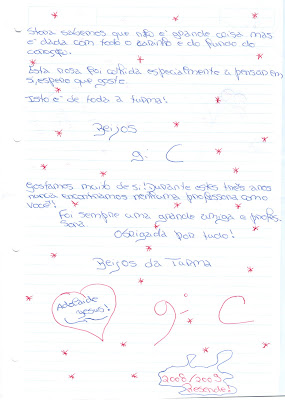 Stora sabemos que não é grande coisa mas
é dada com todo o carinho e do fundo do
coração.
Esta rosa foi colhida especialmente a pensar em
si, espero que goste.
Isto é de toda a turma!
Beijos
9º C
Gostamos muito de si! Durante estes três anos
nunca encontramos nenhuma professora como
você!
Foi sempre uma grande amiga e profes-
sora.
Obrigada por tudo!
Beijos da Turma
Adelaide
Jesus!
9º C
2008/2009
Resende!